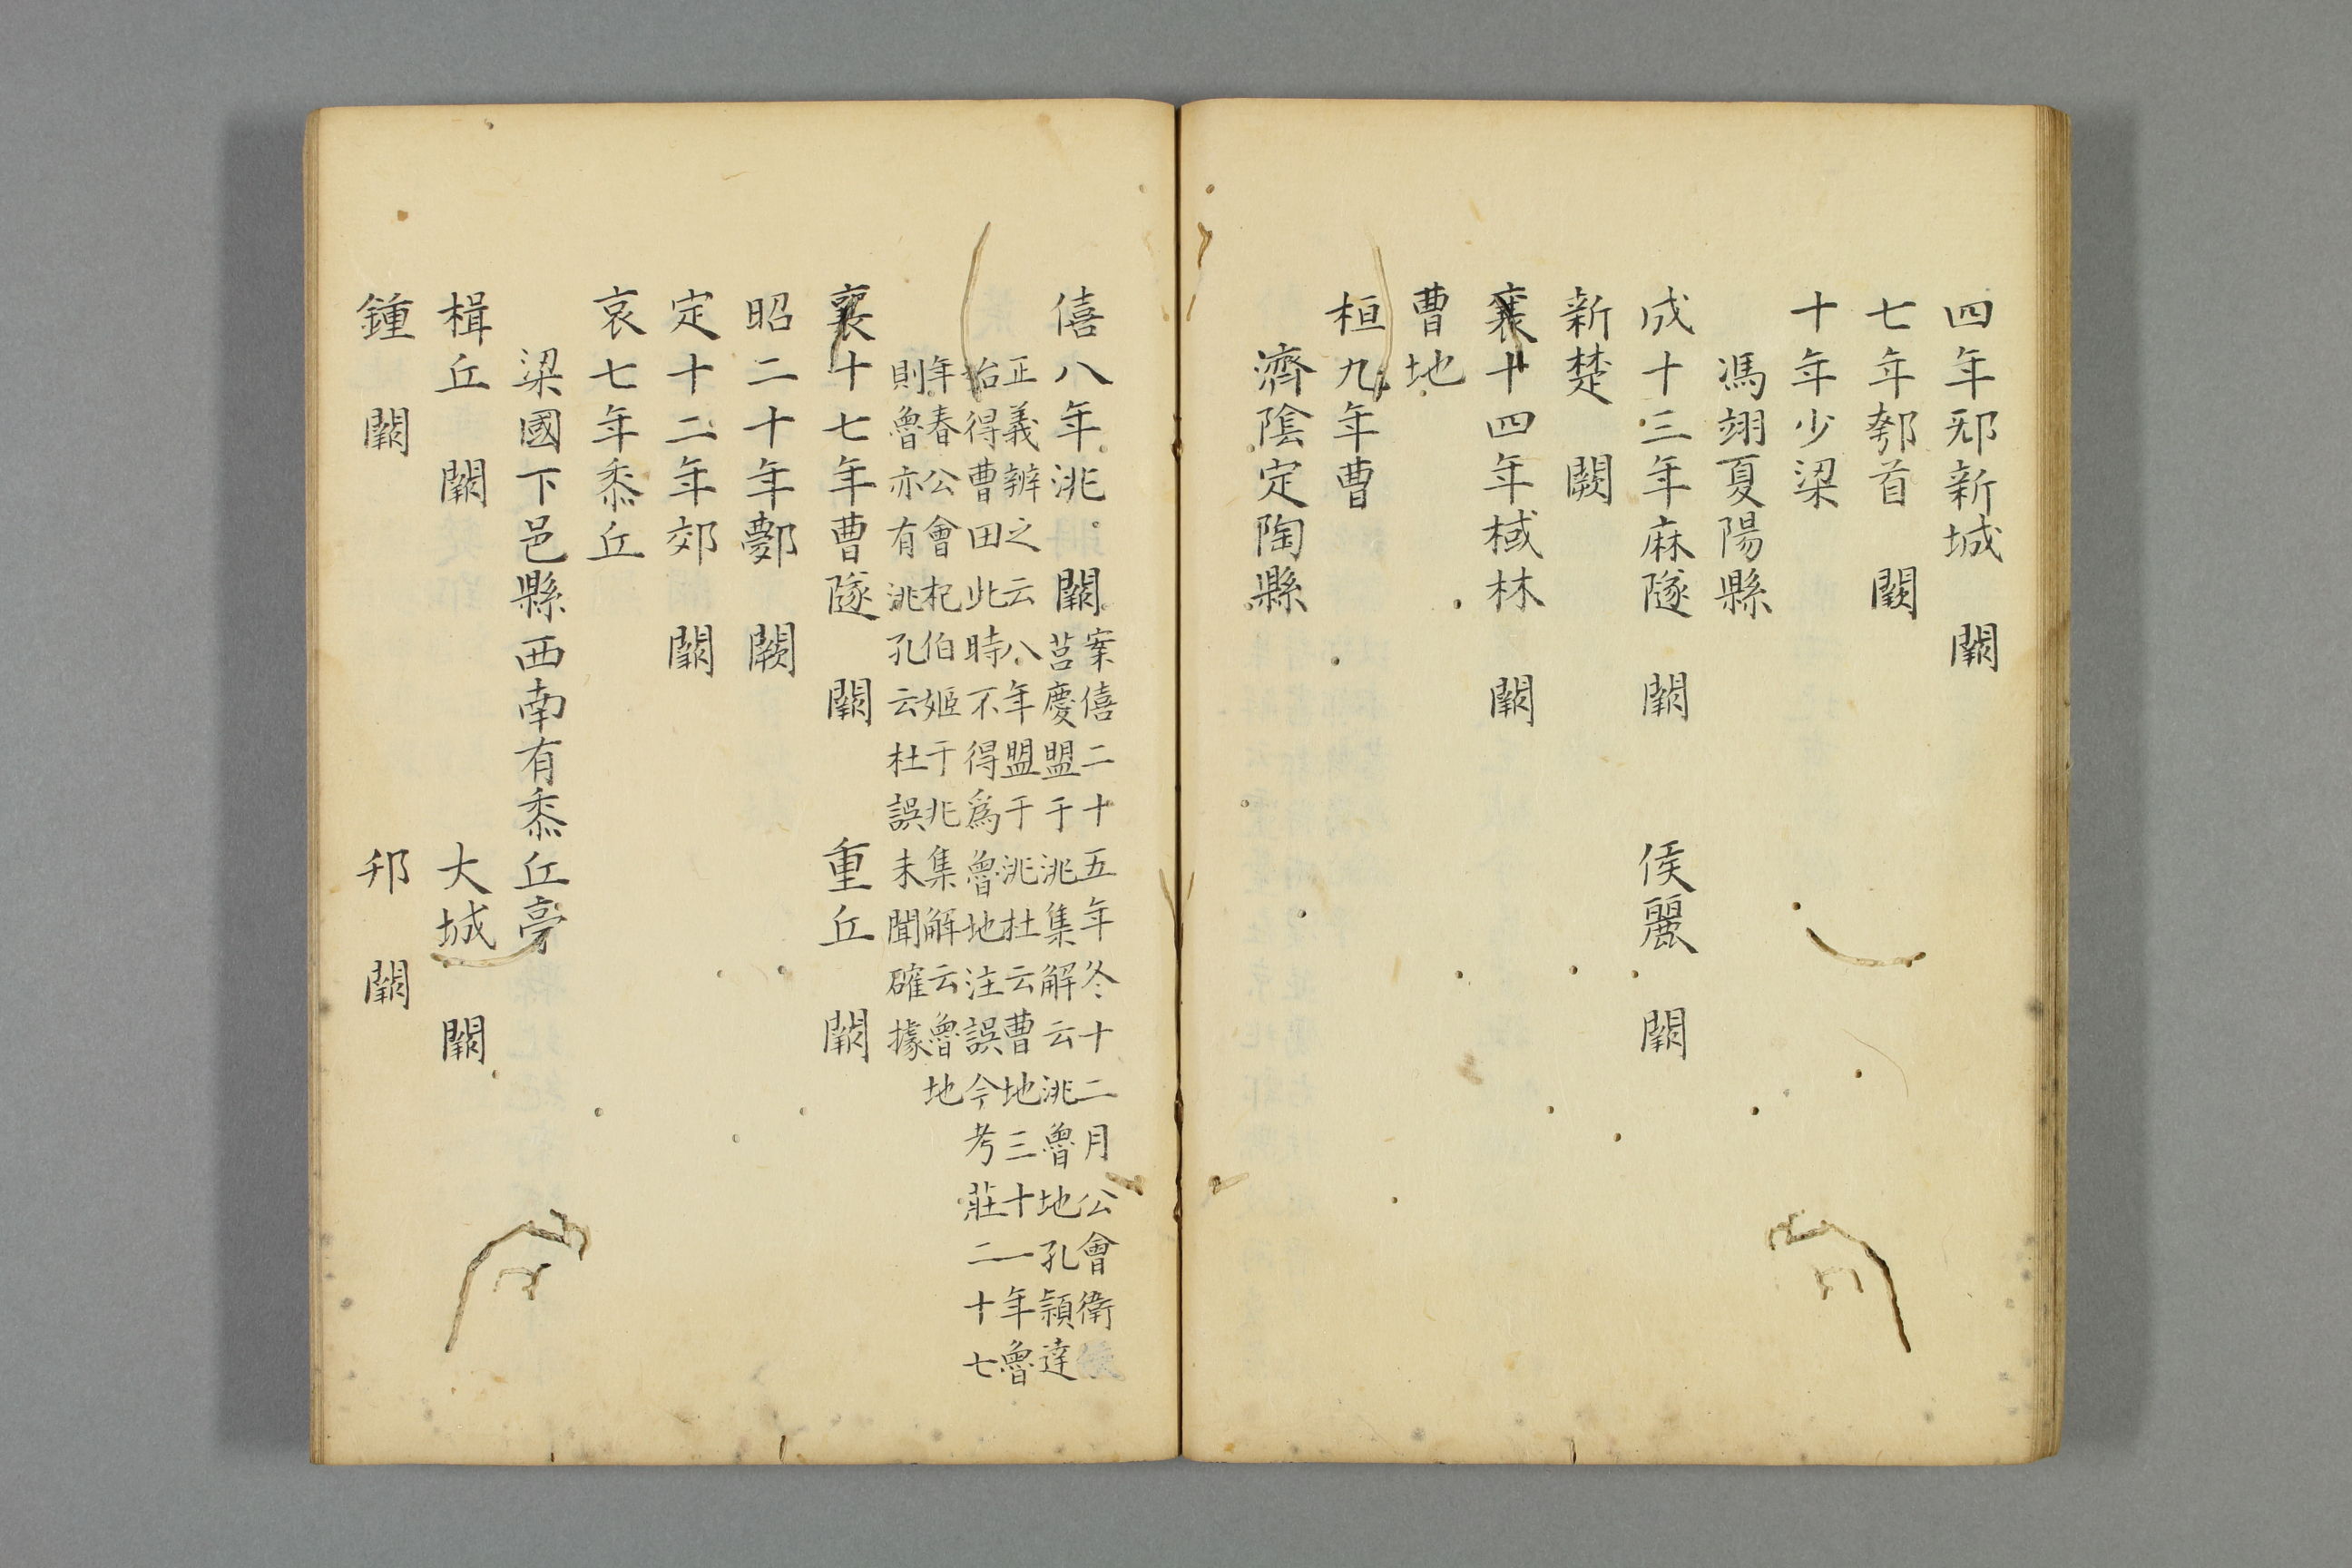 四年邧新城　闕
七年郀首　闕
十年少梁
馮翊夏陽縣
成十三年麻隧　闕　侯麗　闕
新楚　闕
襄十四年棫林　闕
曹地
桓九年曹
濟陰定陶縣
僖八年洮　闕
案僖二十五年冬十二月公會衛
莒慶盟于洮集解云洮魯地孔穎達
正義辨之云八年盟于洮杜云曹地三十一年魯
始得曹田此時不得爲魯地注誤今考莊二十七
年春公會杞伯姬于洮集解云魯地
則魯亦有洮孔云杜誤未聞確據
襄十七年曹隧　闕　重丘　闕
昭二十年鄸　闕
定十二年郊　闕
哀七年黍丘
梁國下邑縣西南有黍丘亭
楫丘　闕　大城　闕
鍾　闕　邘　闕